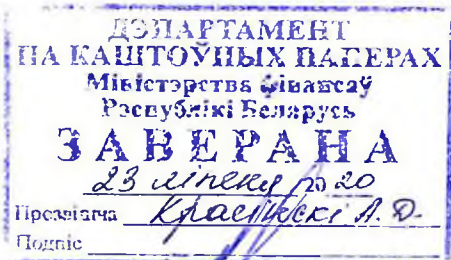 ДЭПАРТАМЕНТ
ПА КАШТОЎНЫХ ПАПЕРАХ
Міністэрства фінансаў
Рэспублікі Беларусь
ЗАВЕРАНА
23 ліпеня 2020
Прозвішча Красінскі А. Д.
Подпіс